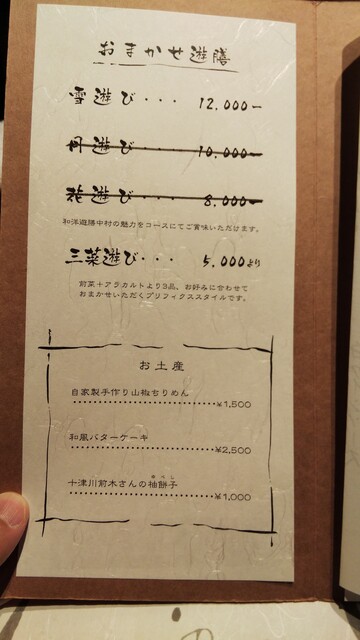 おまかせ遊膳
雪遊び・・・ 12,000ー
月遊び・・・ 10,000ー
花遊び・・・ 8,000ー
和洋遊膳中村の魅力をコースにてご賞味いただけます。
三菜遊び・・・ 5,000より
前菜+アラカルトより3品、お好みに合わせて
おまかせいただくプリフィクススタイルです。
お土産
自家製手作り山椒ちりめん
¥1,500
和風バターケーキ
¥2,500
十津川前木さんの柚餅子
¥1,000